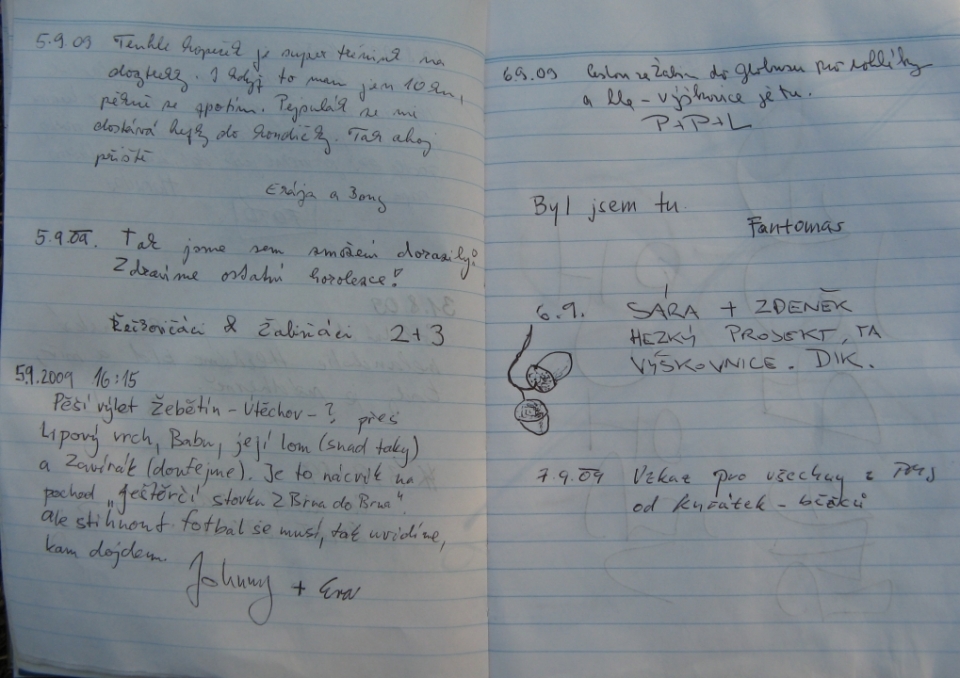 5.9.09 Tenhle kopeček je super trénink na
dogtrekk. I když to mám jen 10 km,
pěkně se zpotím. Pepulák se mi
dostává hezky do kondičky. Tak ahoj
příště
Erája a Bony
5.9.09. Tak jsme sem smoženi dorazily!
Zdravíme ostatní horolezce!
Křižovičáci & Žabiňáci 2+3
5.9.2009 16:15
Pěší výlet Žebětín - Útěchov - ?, přes
Lipový vrch, Babu, její lom (snad taky)
a Zavírák (doufejme). Je to nácvik na
pochod „Ještěrčí stovka Z Brna do Brna“.
Ale stihnout fotbal se musí, tak uvidíme,
kam dojdem.
Johnny + Eva
6.9.09 Cestou ze Žabin do globusu pro rohlíky
a - výškovnice je tu.
P+P+L
Byl jsem tu.
Fantomas
6.9. SÁRA + ZDENĚK
HEZKÝ PROJEKT, TA
VÝŠKOVNICE. DÍK.
7.9.09 Vzkaz pro všechny z
od kuřátek - běžků